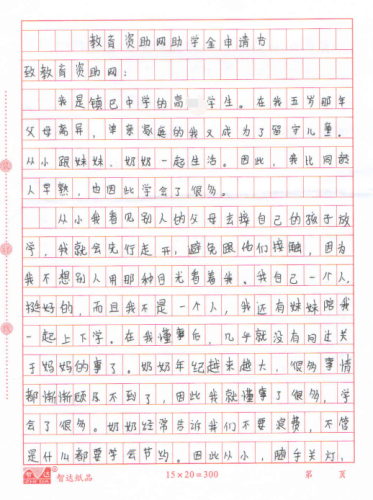 教育资助网助学金申请书
致教育资助网:
我是镇巴中学的高 学生。在我五岁那年
父母离异,单亲家庭的我又成为了留守儿童。
从小跟妹妹、奶奶一起生活。因此,我比同龄
人早熟,也因此学会了很多。
从小我看见别人的父母去接自己的孩子放
学,我就会先行走开,避免跟他们接触,因为
我不想别人用那种目光看着我。我自己一个人,
挺好的,而且我不是一个人,我还有妹妹陪我
一起上下学。在我懂事后,几乎就没有问过关
于妈妈的事了。奶奶年纪越来越大,很多事情
都渐渐顾及不到了,因此我就懂事了很多,学
会了很多。奶奶经常告诉我们不要浪费,不管
是什么都要学会节约。因此从小,随手关灯,
智达纸品
15×20=300
第 页